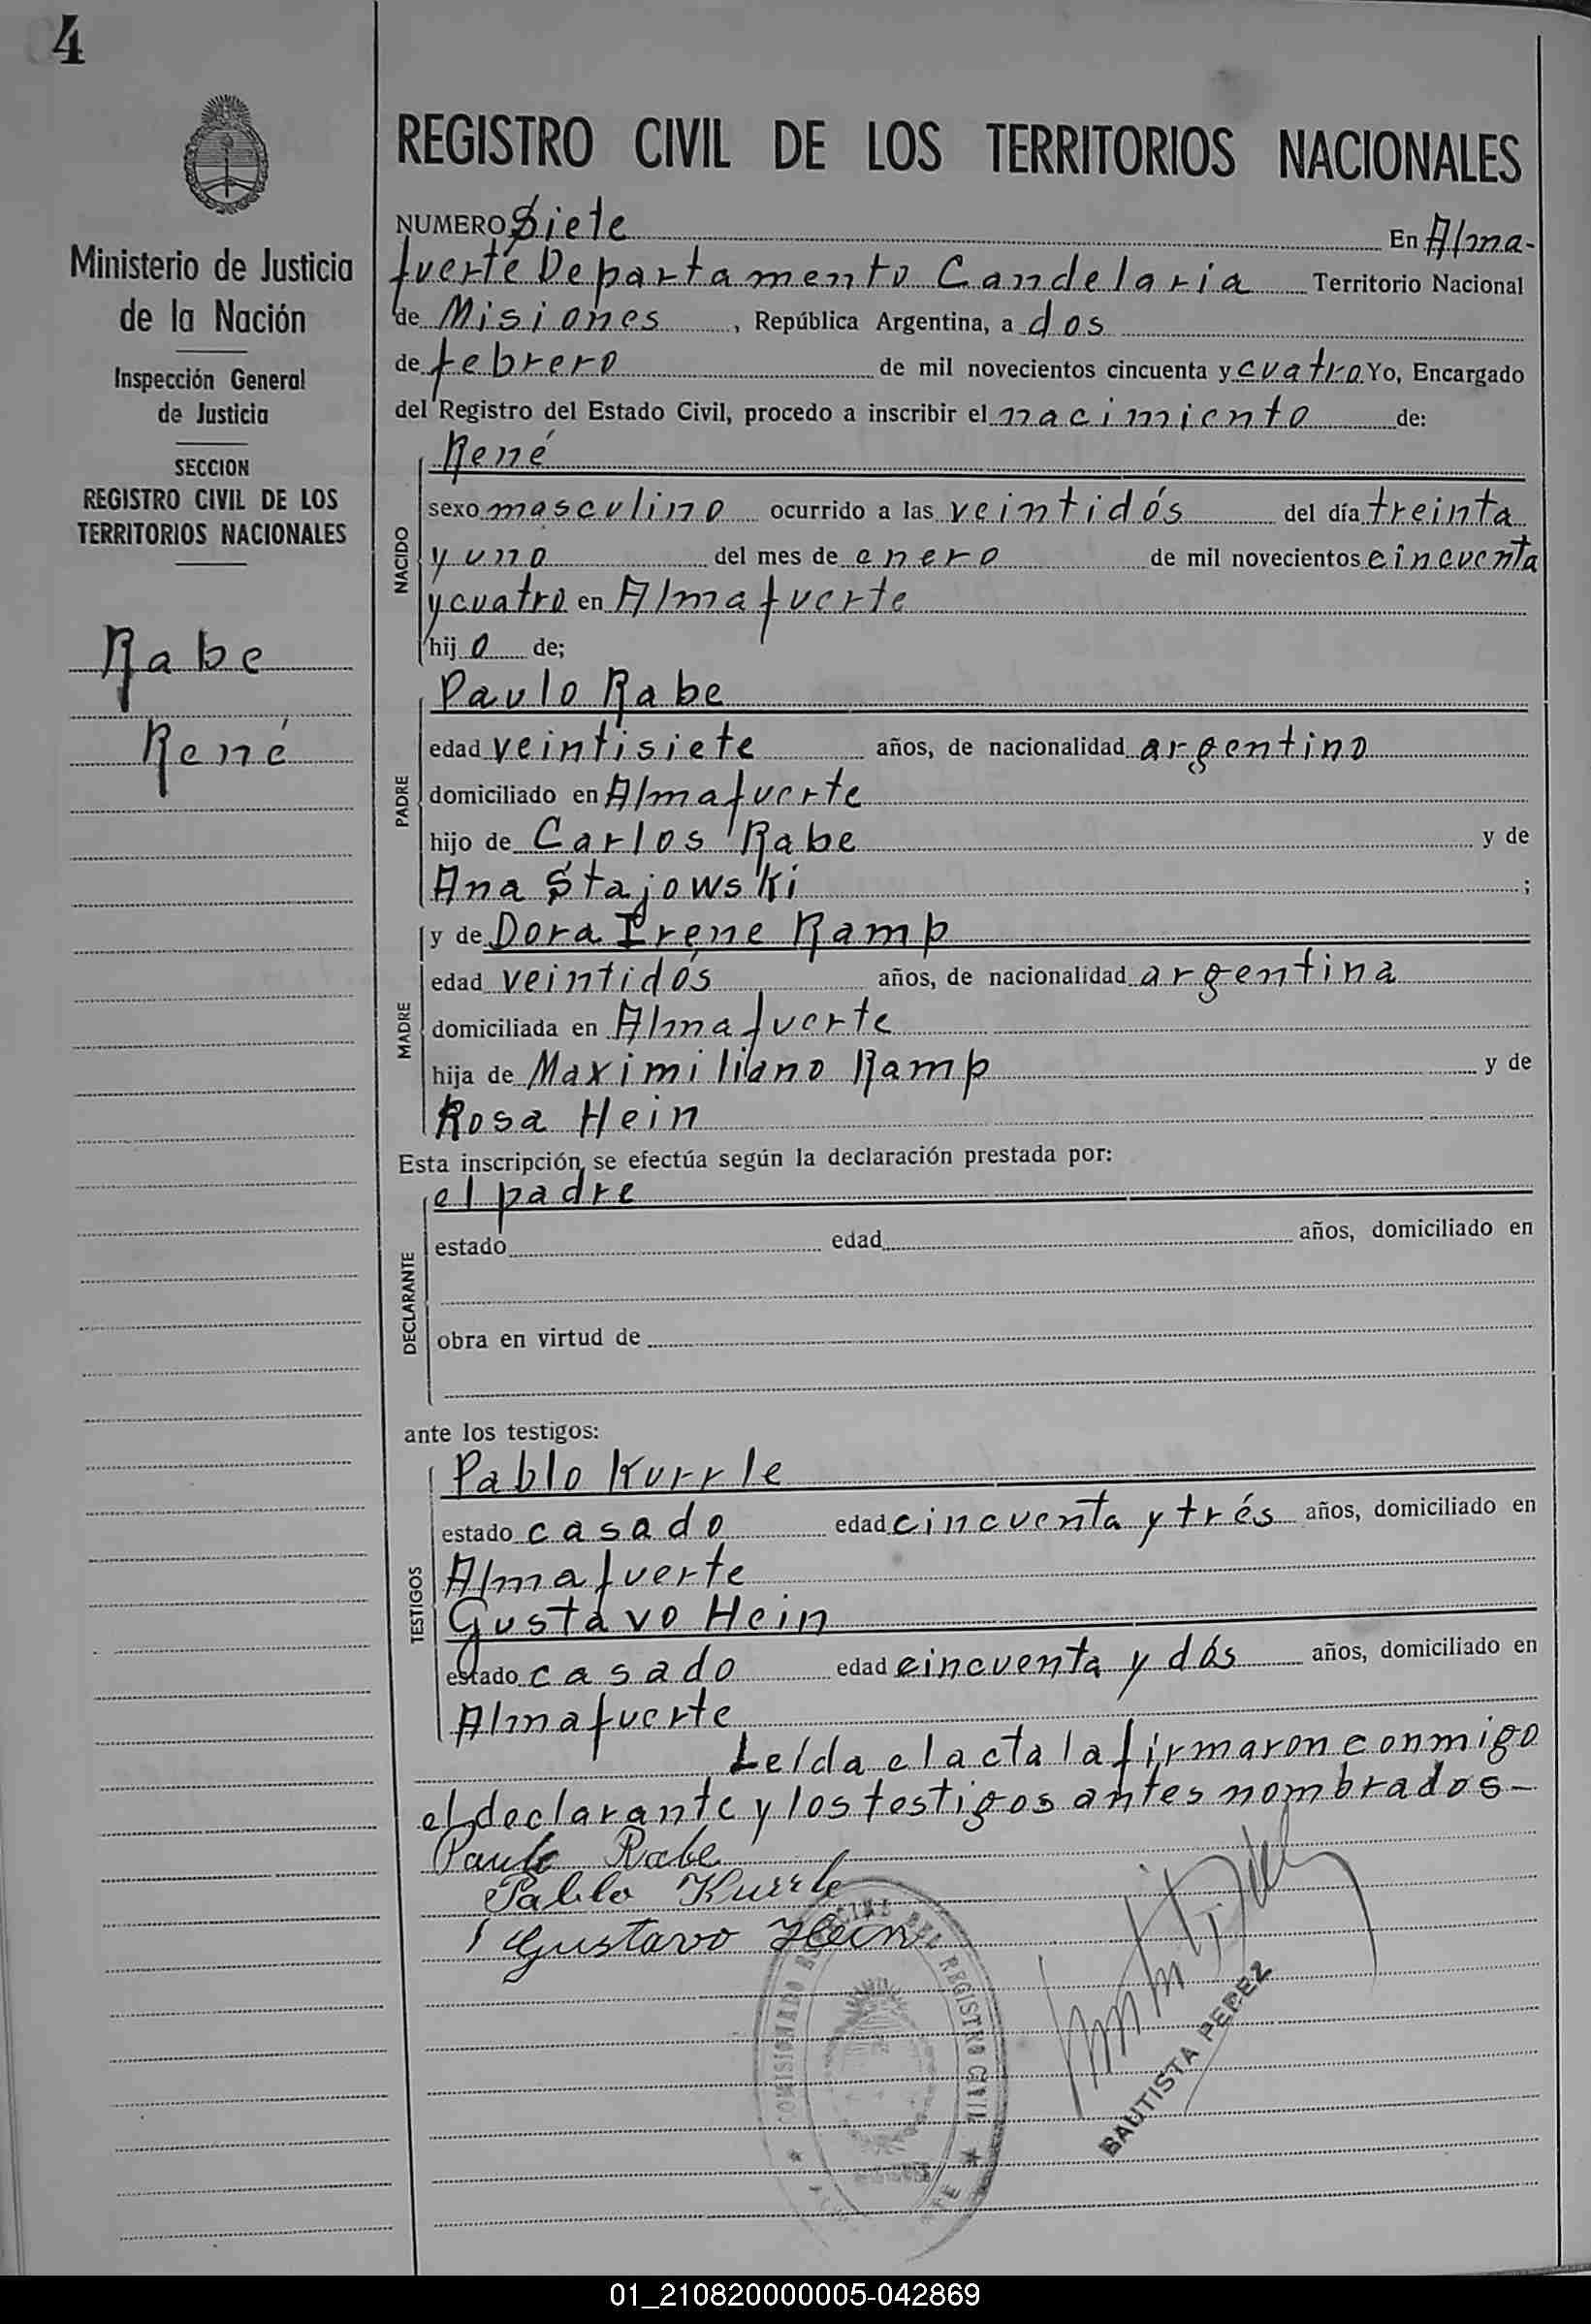 4
Ministerio de Justicia
de la Nación
Inspección General
de Justicia
SECCION
REGISTRO CIVIL DE LOS
TERRITORIOS NACIONALES
Rabe
René
REGISTRO CIVIL DE LOS TERRITORIOS NACIONALES
NUMERO Siete En Alma-
fuerte Departamento Candelaria Territorio Nacional
de Misiones, República Argentina, a dos
de febrero de mil novecientos cincuenta y cuatro Yo, Encargado
del Registro del Estado Civil, procedo a inscribir el nacimiento de:
NACIDO
René
sexo masculino ocurrido a las veintidós del día treinta
y uno del mes de enero de mil novecientos cincuenta
y cuatro en Almafuerte
hijo de;
PADRE
Paulo Rabe
edad veintisiete años, de nacionalidad argentino
domiciliado en Almafuerte
hijo de Carlos Rabe y de
Ana Stajowski ;
MADRE
y de Dora Irene Ramp
edad veintidós años, de nacionalidad argentina
domiciliada en Almafuerte
hija de Maximiliano Ramp y de
Rosa Hein
Esta inscripción se efectúa según la declaración prestada por:
DECLARANTE
el padre
estado edad años, domiciliado en
obra en virtud de
ante los testigos:
TESTIGOS
Pablo Kurrle
estado casado edad cincuenta y trés años, domiciliado en
Almafuerte
Gustavo Hein
estado casado edad cincuenta y dós años, domiciliado en
Almafuerte
Leída el acta la firmaron conmigo
el declarante y los testigos antes nombrados-
Paulo Rabe
Pablo Kurrle
Gustavo Hein
COMISIONADO DEL REGISTRO CIVIL
BAUTISTA PEREZ
01_210820000005-042869